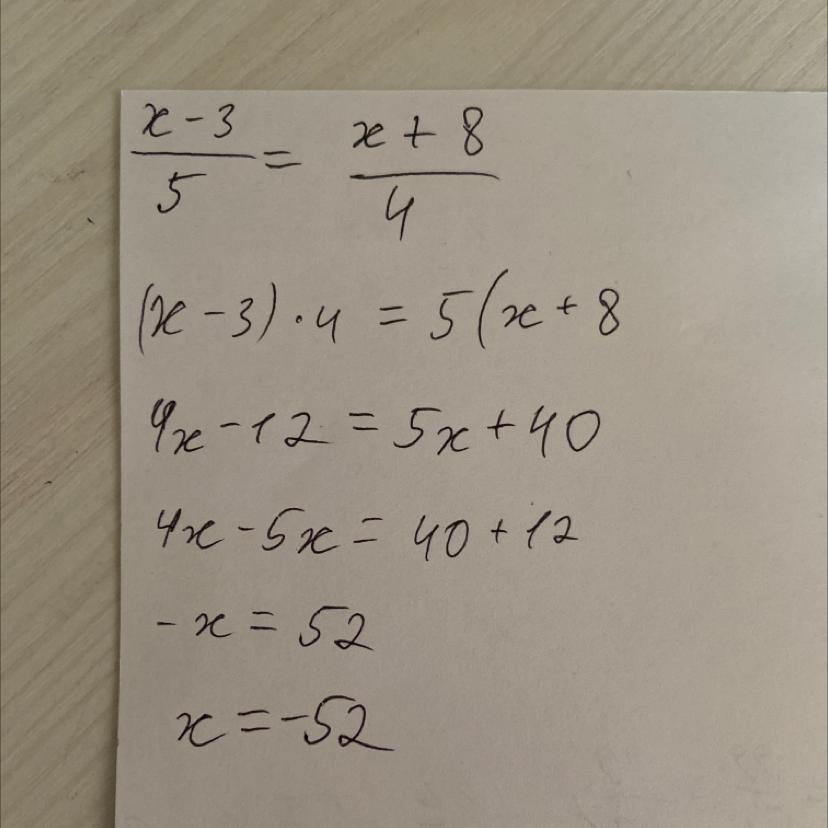 x - 3 / 5 = x + 8 / 4
(x - 3) · 4 = 5(x + 8
4x - 12 = 5x + 40
4x - 5x = 40 + 12
- x = 52
x = -52